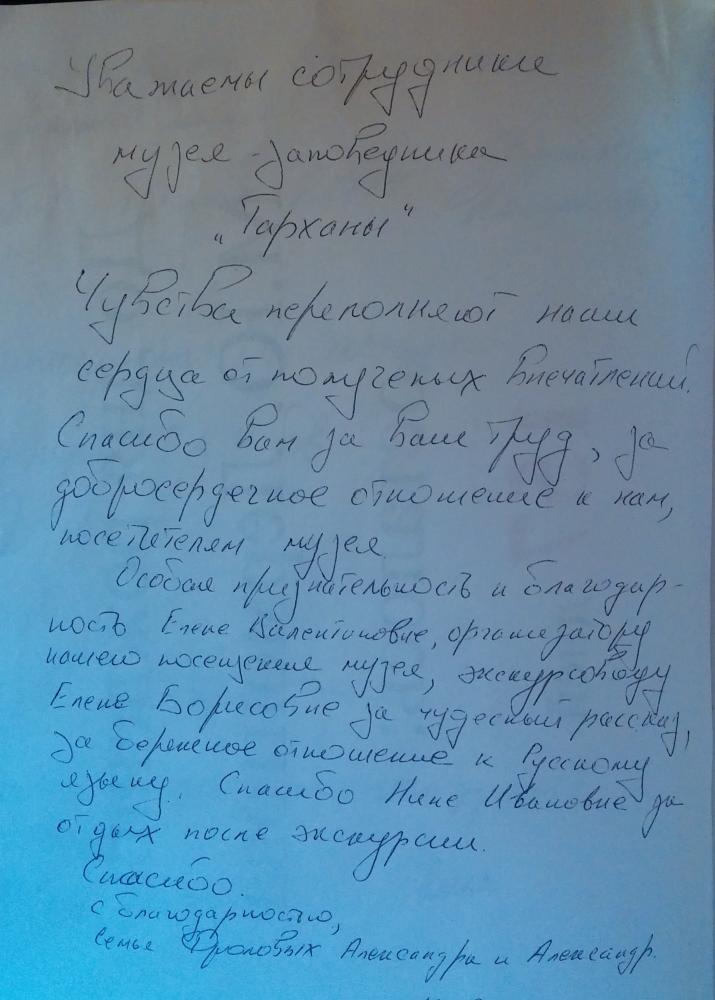 Уважаемы сотрудники
музея-заповедника
„Тарханы"
Чувства переполняют наши
сердца от полученых впечатлений.
Спасибо Вам за Ваш труд, за
добросердечное отношение к нам,
посетителям музея.
Особая признательность и благодар-
ность Елене Валентиновне, организатору
нашего посещения музея, экскурсоводу
Елене Борисовне за чудесный рассказ,
за бережное отношение к Русскому
языку. Спасибо Нине Ивановне за
отдых после экскурсии.
Спасибо.
С благодарностью,
семья Фроловых Александра и Александр.